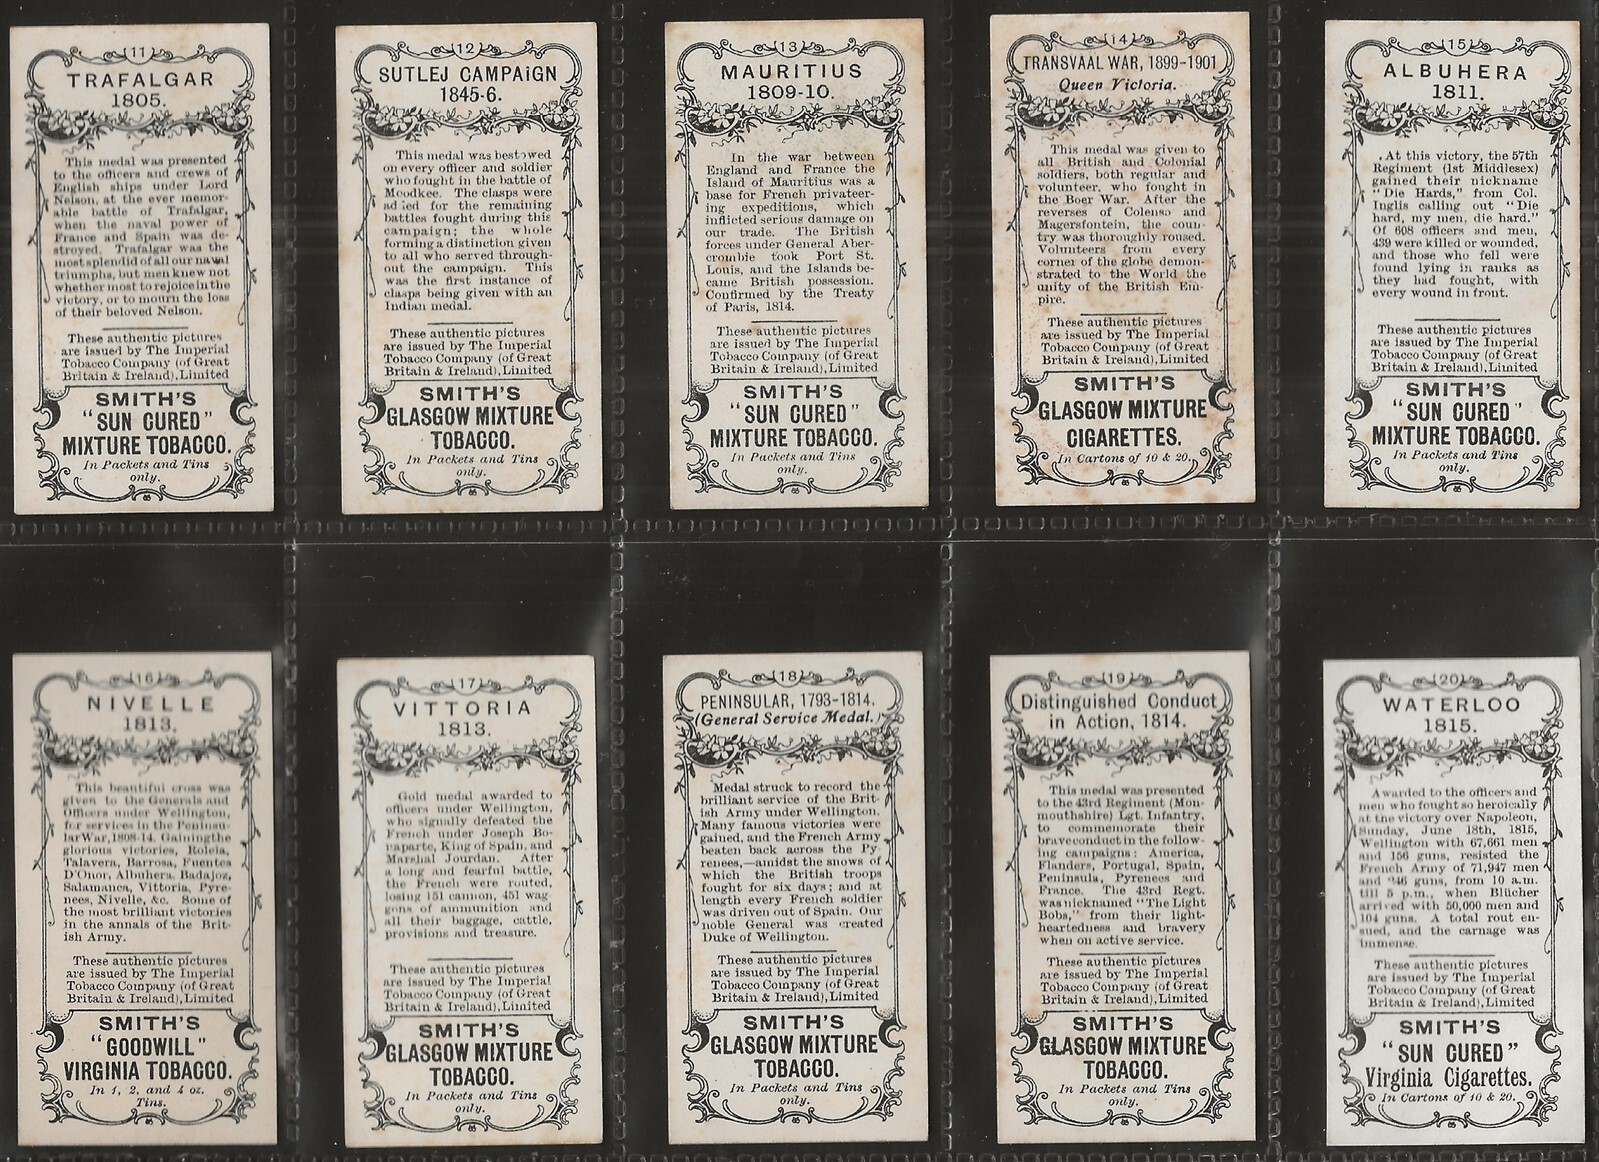 (11)
TRAFALGAR
1805.
This medal was presented
to the officers and crews of
English ships under Lord
Nelson, at the ever memor-
able battle of Trafalgar,
when the naval power of
France and Spain was de-
stroyed. Trafalgar was the
most splendid of all our naval
triumphs, but men knew not
whether most to rejoice in the
victory, or to mourn the loss
of their beloved Nelson.
These authentic pictures
are issued by The Imperial
Tobacco Company (of Great
Britain & Ireland), Limited
SMITH'S
"SUN CURED"
MIXTURE TOBACCO.
In Packets and Tins
only.
(12)
SUTLEJ CAMPAiGN
1845-6.
This medal was bestowed
on every officer and soldier
who fought in the battle of
Moodkee. The clasps were
added for the remaining
battles fought during this
campaign; the whole
forming a distinction given
to all who served through-
out the campaign. This
was the first instance of
clasps being given with an
Indian medal.
These authentic pictures
are issued by The Imperial
Tobacco Company (of Great
Britain & Ireland), Limited
SMITH'S
GLASGOW MIXTURE
TOBACCO.
In Packets and Tins
only.
(13)
MAURITIUS
1809-10.
In the war between
England and France the
Island of Mauritius was a
base for French privateer-
ing expeditions, which
inflicted serious damage on
our trade. The British
forces under General Aber-
crombie took Port St.
Louis, and the Islands be-
came British possession.
Confirmed by the Treaty
of Paris, 1814.
These authentic pictures
are issued by The Imperial
Tobacco Company (of Great
Britain & Ireland), Limited
SMITH'S
"SUN CURED"
MIXTURE TOBACCO.
In Packets and Tins
only.
(14)
TRANSVAAL WAR, 1899-1901
Queen Victoria.
This medal was given to
all British and Colonial
soldiers, both regular and
volunteer, who fought in
the Boer War. After the
reverses of Colenso and
Magersfontein, the coun-
try was thoroughly roused.
Volunteers from every
corner of the globe demon-
strated to the World the
unity of the British Em-
pire.
These authentic pictures
are issued by The Imperial
Tobacco Company (of Great
Britain & Ireland), Limited
SMITH'S
GLASGOW MIXTURE
CIGARETTES.
In Cartons of 10 & 20.
(15)
ALBUHERA
1811.
At this victory, the 57th
Regiment (1st Middlesex)
gained their nickname
"Die Hards," from Col.
Inglis calling out "Die
hard, my men, die hard."
Of 608 officers and men,
439 were killed or wounded,
and those who fell were
found lying in ranks as
they had fought, with
every wound in front.
These authentic pictures
are issued by The Imperial
Tobacco Company (of Great
Britain & Ireland), Limited
SMITH'S
"SUN CURED"
MIXTURE TOBACCO.
In Packets and Tins
only.
(16)
NIVELLE
1813.
This beautiful cross was
given to the Generals and
Officers under Wellington,
for services in the Peninsu-
lar War, 1808-14. Gaining the
glorious victories, Roleia,
Talavera, Barrosa, Fuentes
D'Onor, Albuhera, Badajoz,
Salamanca, Vittoria, Pyre-
nees, Nivelle, &c. Some of
the most brilliant victories
in the annals of the Brit-
ish Army.
These authentic pictures
are issued by The Imperial
Tobacco Company (of Great
Britain & Ireland), Limited
SMITH'S
"GOODWILL"
VIRGINIA TOBACCO.
In 1, 2, and 4 oz.
Tins.
(17)
VITTORIA
1813.
Gold medal awarded to
officers under Wellington,
who signally defeated the
French under Joseph Bo-
naparte, King of Spain, and
Marshal Jourdan. After
a long and fearful battle,
the French were routed,
losing 151 cannon, 451 wag-
gons of ammunition and
all their baggage, cattle,
provisions and treasure.
These authentic pictures
are issued by The Imperial
Tobacco Company (of Great
Britain & Ireland), Limited
SMITH'S
GLASGOW MIXTURE
TOBACCO.
In Packets and Tins
only.
(18)
PENINSULAR, 1793-1814.
(General Service Medal.)
Medal struck to record the
brilliant service of the Brit-
ish Army under Wellington.
Many famous victories were
gained, and the French Army
beaten back across the Py-
renees,—amidst the snows of
which the British troops
fought for six days; and at
length every French soldier
was driven out of Spain. Our
noble General was created
Duke of Wellington.
These authentic pictures
are issued by The Imperial
Tobacco Company (of Great
Britain & Ireland), Limited
SMITH'S
GLASGOW MIXTURE
TOBACCO.
In Packets and Tins
only.
(19)
Distinguished Conduct
in Action, 1814.
This medal was presented
to the 43rd Regiment (Mon-
mouthshire) Lgt. Infantry,
to commemorate their
brave conduct in the follow-
ing campaigns: America,
Flanders, Portugal, Spain,
Peninsula, Pyrenees and
France. The 43rd Regt.
was nicknamed "The Light
Bobs," from their light-
heartedness and bravery
when on active service.
These authentic pictures
are issued by The Imperial
Tobacco Company (of Great
Britain & Ireland), Limited
SMITH'S
GLASGOW MIXTURE
TOBACCO.
In Packets and Tins
only.
(20)
WATERLOO
1815.
Awarded to the officers and
men who fought so heroically
at the victory over Napoleon,
Sunday, June 18th, 1815,
Wellington with 67,661 men
and 156 guns, resisted the
French Army of 71,947 men
and 246 guns, from 10 a.m.
till 5 p.m., when Blücher
arrived with 50,000 men and
104 guns. A total rout en-
sued, and the carnage was
immense.
These authentic pictures
are issued by The Imperial
Tobacco Company (of Great
Britain & Ireland), Limited
SMITH'S
"SUN CURED"
Virginia Cigarettes.
In Cartons of 10 & 20.